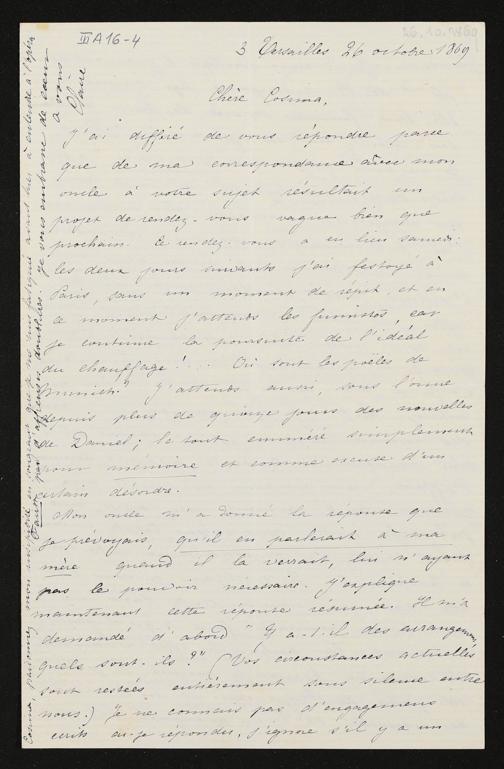 III A 16-4
26.10.1869
3 Versailles 26 octobre 1869
Chère Cosima,
J'ai différé de vous répondre parce
que de ma correspondance avec mon
oncle à votre sujet résultait un
projet de rendez-vous vague bien que
prochain. Ce rendez-vous a eu lieu samedi:
les deux jours suivants j'ai festoyé à
Paris, sans un moment de répit, et en
ce moment j'attends les fumistes, car
je continue la poursuite de l'idéal
du chauffage!... Où sont les poëles de
Munich? J'attends aussi, sous l'orme
depuis plus de quinze jours des nouvelles
de Daniel; le tout énuméré simplement
pour mémoire et comme excuse d'un
certain désordre.
Mon oncle m'a donné la réponse que
je prévoyais, qu'il en parlerait à ma
mère quand il la verrait, lui n'ayant
pas le pouvoir nécessaire. J'explique
maintenant cette réponse résumée. Il m'a
demandé d'abord "Y a-t-il des arrangemens,
quels sont-ils?" (Vos circonstances actuelles
sont restées entièrement sous silence entre
nous.) Je ne connais pas d'engagemens
écrits ai-je répondu, j'ignore s'il y a un
Cosima, pardonnez mon en songeant que je me suis fatigué avant hier à entendre à l'opéra
d'affreuses doublures. Je vous embrasse de cœur
à vous
Claire